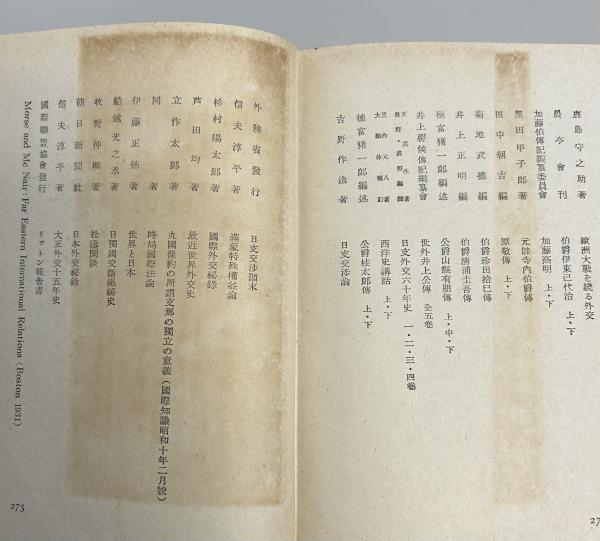 鹿島守之助著 歐洲大戰を繞る外交
晨亭會刊 伯爵伊東巳代治 上・下
加藤伯傳記編纂委員會 加藤高明 上・下
黑田甲子郎著 元帥寺內伯爵傳
田中朝吉編 原敬傳 上・下
菊地武德編 伯爵珍田捨巳傳
井上正明編 伯爵淸浦圭吾傳
德富猪一郎編述 公爵山縣有朋傳 上・中・下
井上馨侯傳記編纂會 世外井上公傳 全五卷
王芸生著
長野・波多野編譯 日支外交六十年史 一・二・三・四卷
箕作元八著
大類伸補訂 西洋史講話 上・下
德富猪一郎編述 公爵桂太郎傳 上・下
吉野作造著 日支交涉論
27
外務省發行 日支交涉顚末
信夫淳平著 滿蒙特殊權益論
杉村陽太郎著 國際外交祕錄
芦田均著 最近世界外交史
立作太郎著 九國條約の所謂支那の獨立の意義(國際知識昭和十年二月號)
同 時局國際法論
伊藤正德著 世界と日本
船越光之丞著 日獨國交斷絕祕史
牧野伸顯著 松濤閑談
朝日新聞社 日本外交祕錄
信夫淳平著 大正外交十五年史
國際聯盟協會發行 リットン報告書
Morse and Mc Nair: Far Eastern International Relations (Boston 1931)
273